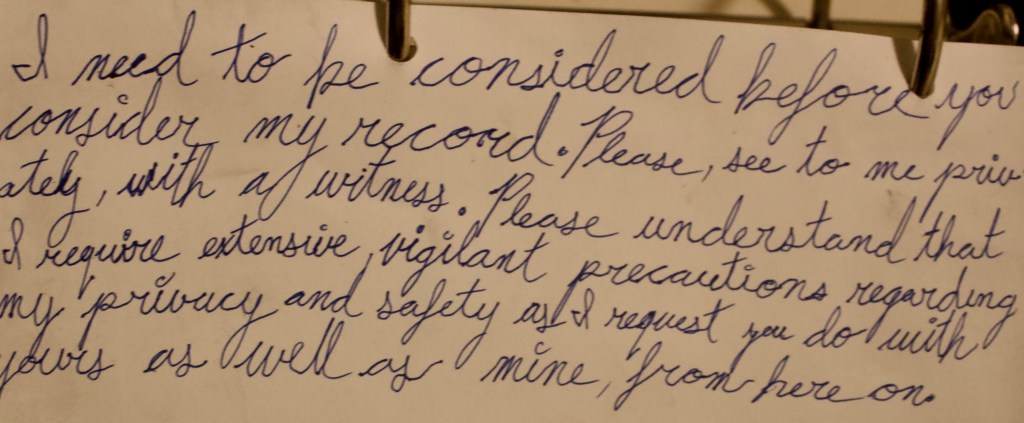 I need to be considered before you
consider my record. Please, see to me priv
ately, with a witness. Please understand that
I require extensive, vigilant precautions regarding
my privacy and safety as I request you do with
yours as well as mine, from here on.